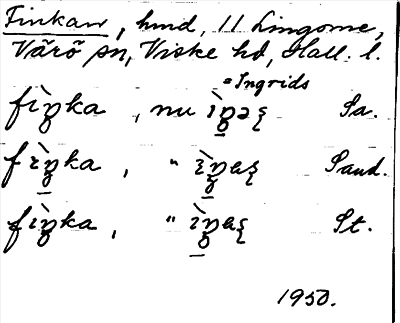 Finkan, hmd, 11 Lingome,
Värö sn, Viske hd, Hall. l.
= Ingrids
fìŋka, nu ìŋəʂ Sa.
fìŋka, " ìŋaʂ Sand.
fìŋka, " ìŋaʂ St.
1950.